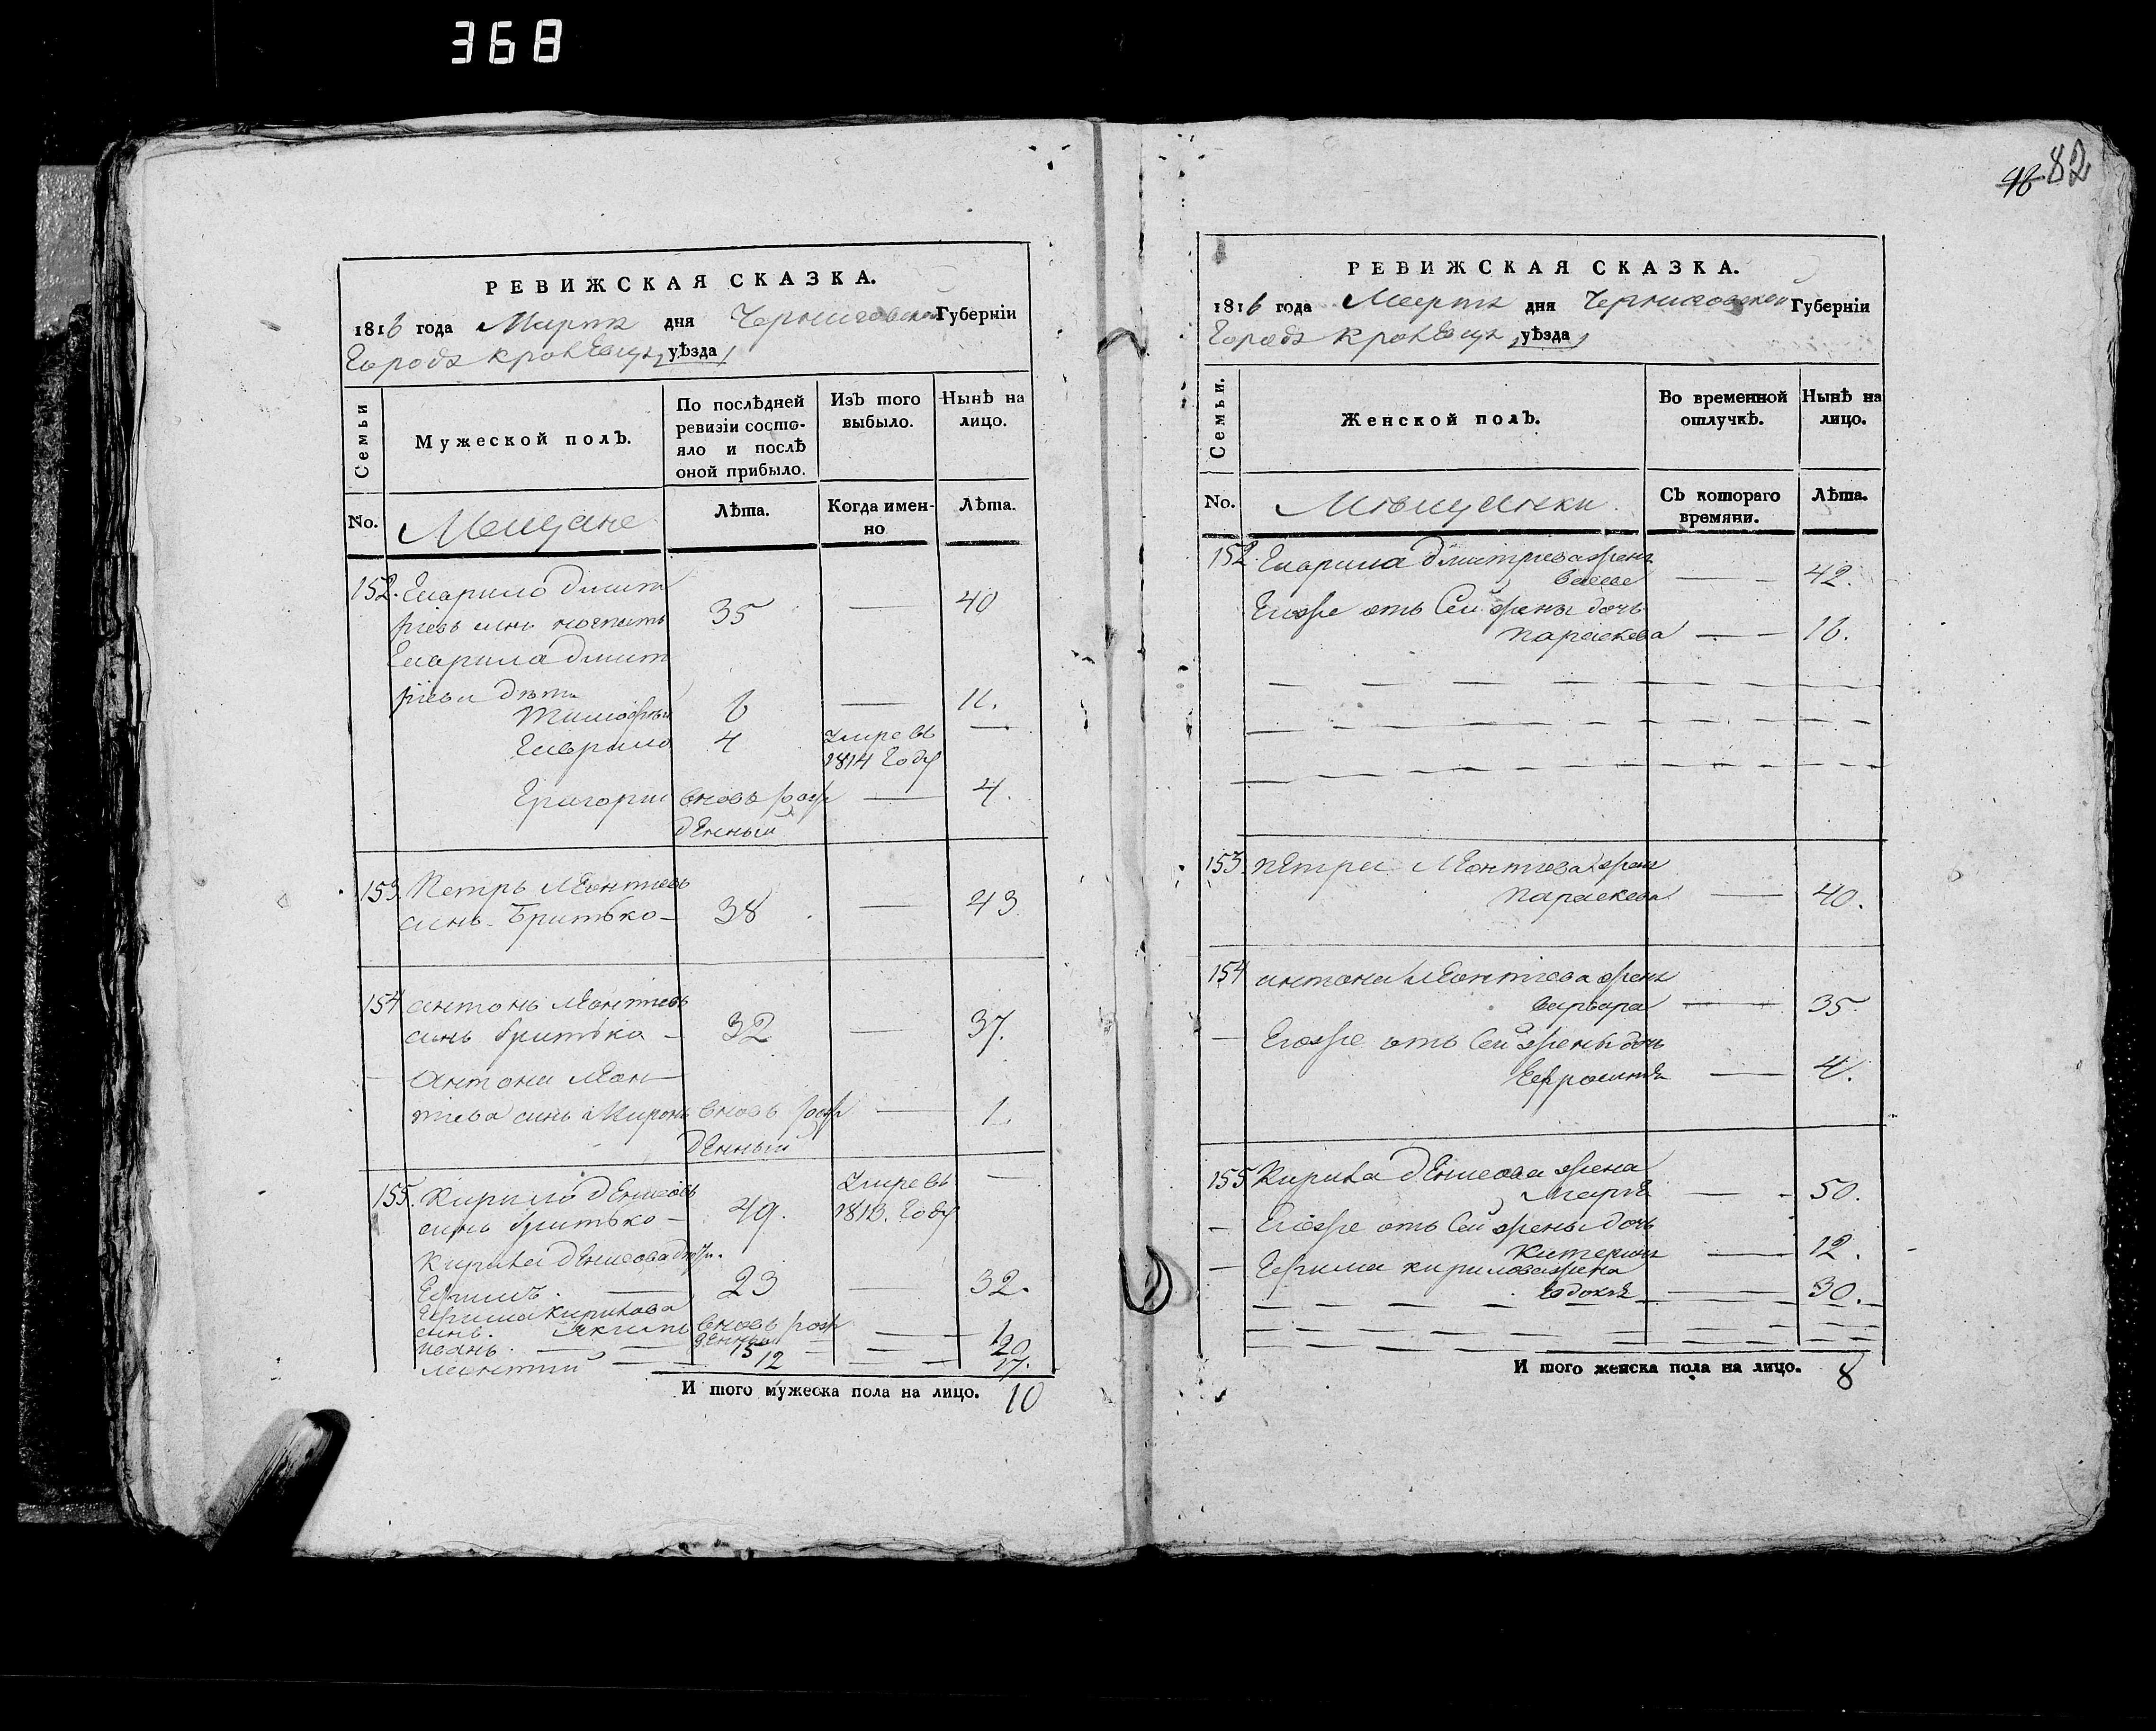 368
82
РЕВИЖСКАЯ СКАЗКА.
1816 года Марта дня Черниговской Губерніи
Города Кролевца уѣзда
Семьи
Мужеской полъ.
По послѣдней ревизіи состояло и послѣ оной прибыло.
Изъ того выбыло.
Нынѣ на лицо.
No.
Мещане
Лѣта.
Когда именно
Лѣта.
152. Гаврило Дмит
ріевъ синъ 35 — 40
Гаврила Дмит
ріева дѣти
Тимофѣй 6 — 11.
Гаврило 4 умре въ —
1814 Году
Григорий вновь рож — 4.
денный
153. Петръ Леонтиевъ
синъ Бритько — 38 — 43
154 антонъ Леонтиевъ
синъ бритька — 32 — 37.
Антона Леон
тіева синъ Миронъ вновь рож — 1.
денный
155. Кирило денисовъ умре въ —
синъ бритько — 49. 1813. Году
Кирила денисова дѣти.
Ефимъ. — 23 — 32.
Ефима Кирилова
синъ. Якимъ вновь рож — 1
денный
иванъ. — 15 — 20
леонтий — 12 — 17.
И того мужеска пола на лицо. 10
РЕВИЖСКАЯ СКАЗКА.
1816 года Марта дня Черниговской Губерніи
Города Кролевца уѣзда
Семьи.
Женской полъ.
Во временной отлучкѣ.
Нынѣ на лицо.
No.
Мѣщанки.
Съ котораго времяни.
Лѣта.
152. Гаврила дмитриева жена
— 42.
Егоже отъ Сей жены дочь
параскева — 16.
153. петра Леонтиева жена
параскева — 40.
154 антона Леонтиева жена
варвара — 35.
— Егоже отъ Сей жены дочь
Ефросиния — 4.
155 Кирила денисова жена
Мария — 50.
— Егоже отъ Сей жены дочь
Катерина — 12.
— Ефима кирилова жена
Евдокия — 30.
И того женска пола на лицо. 8